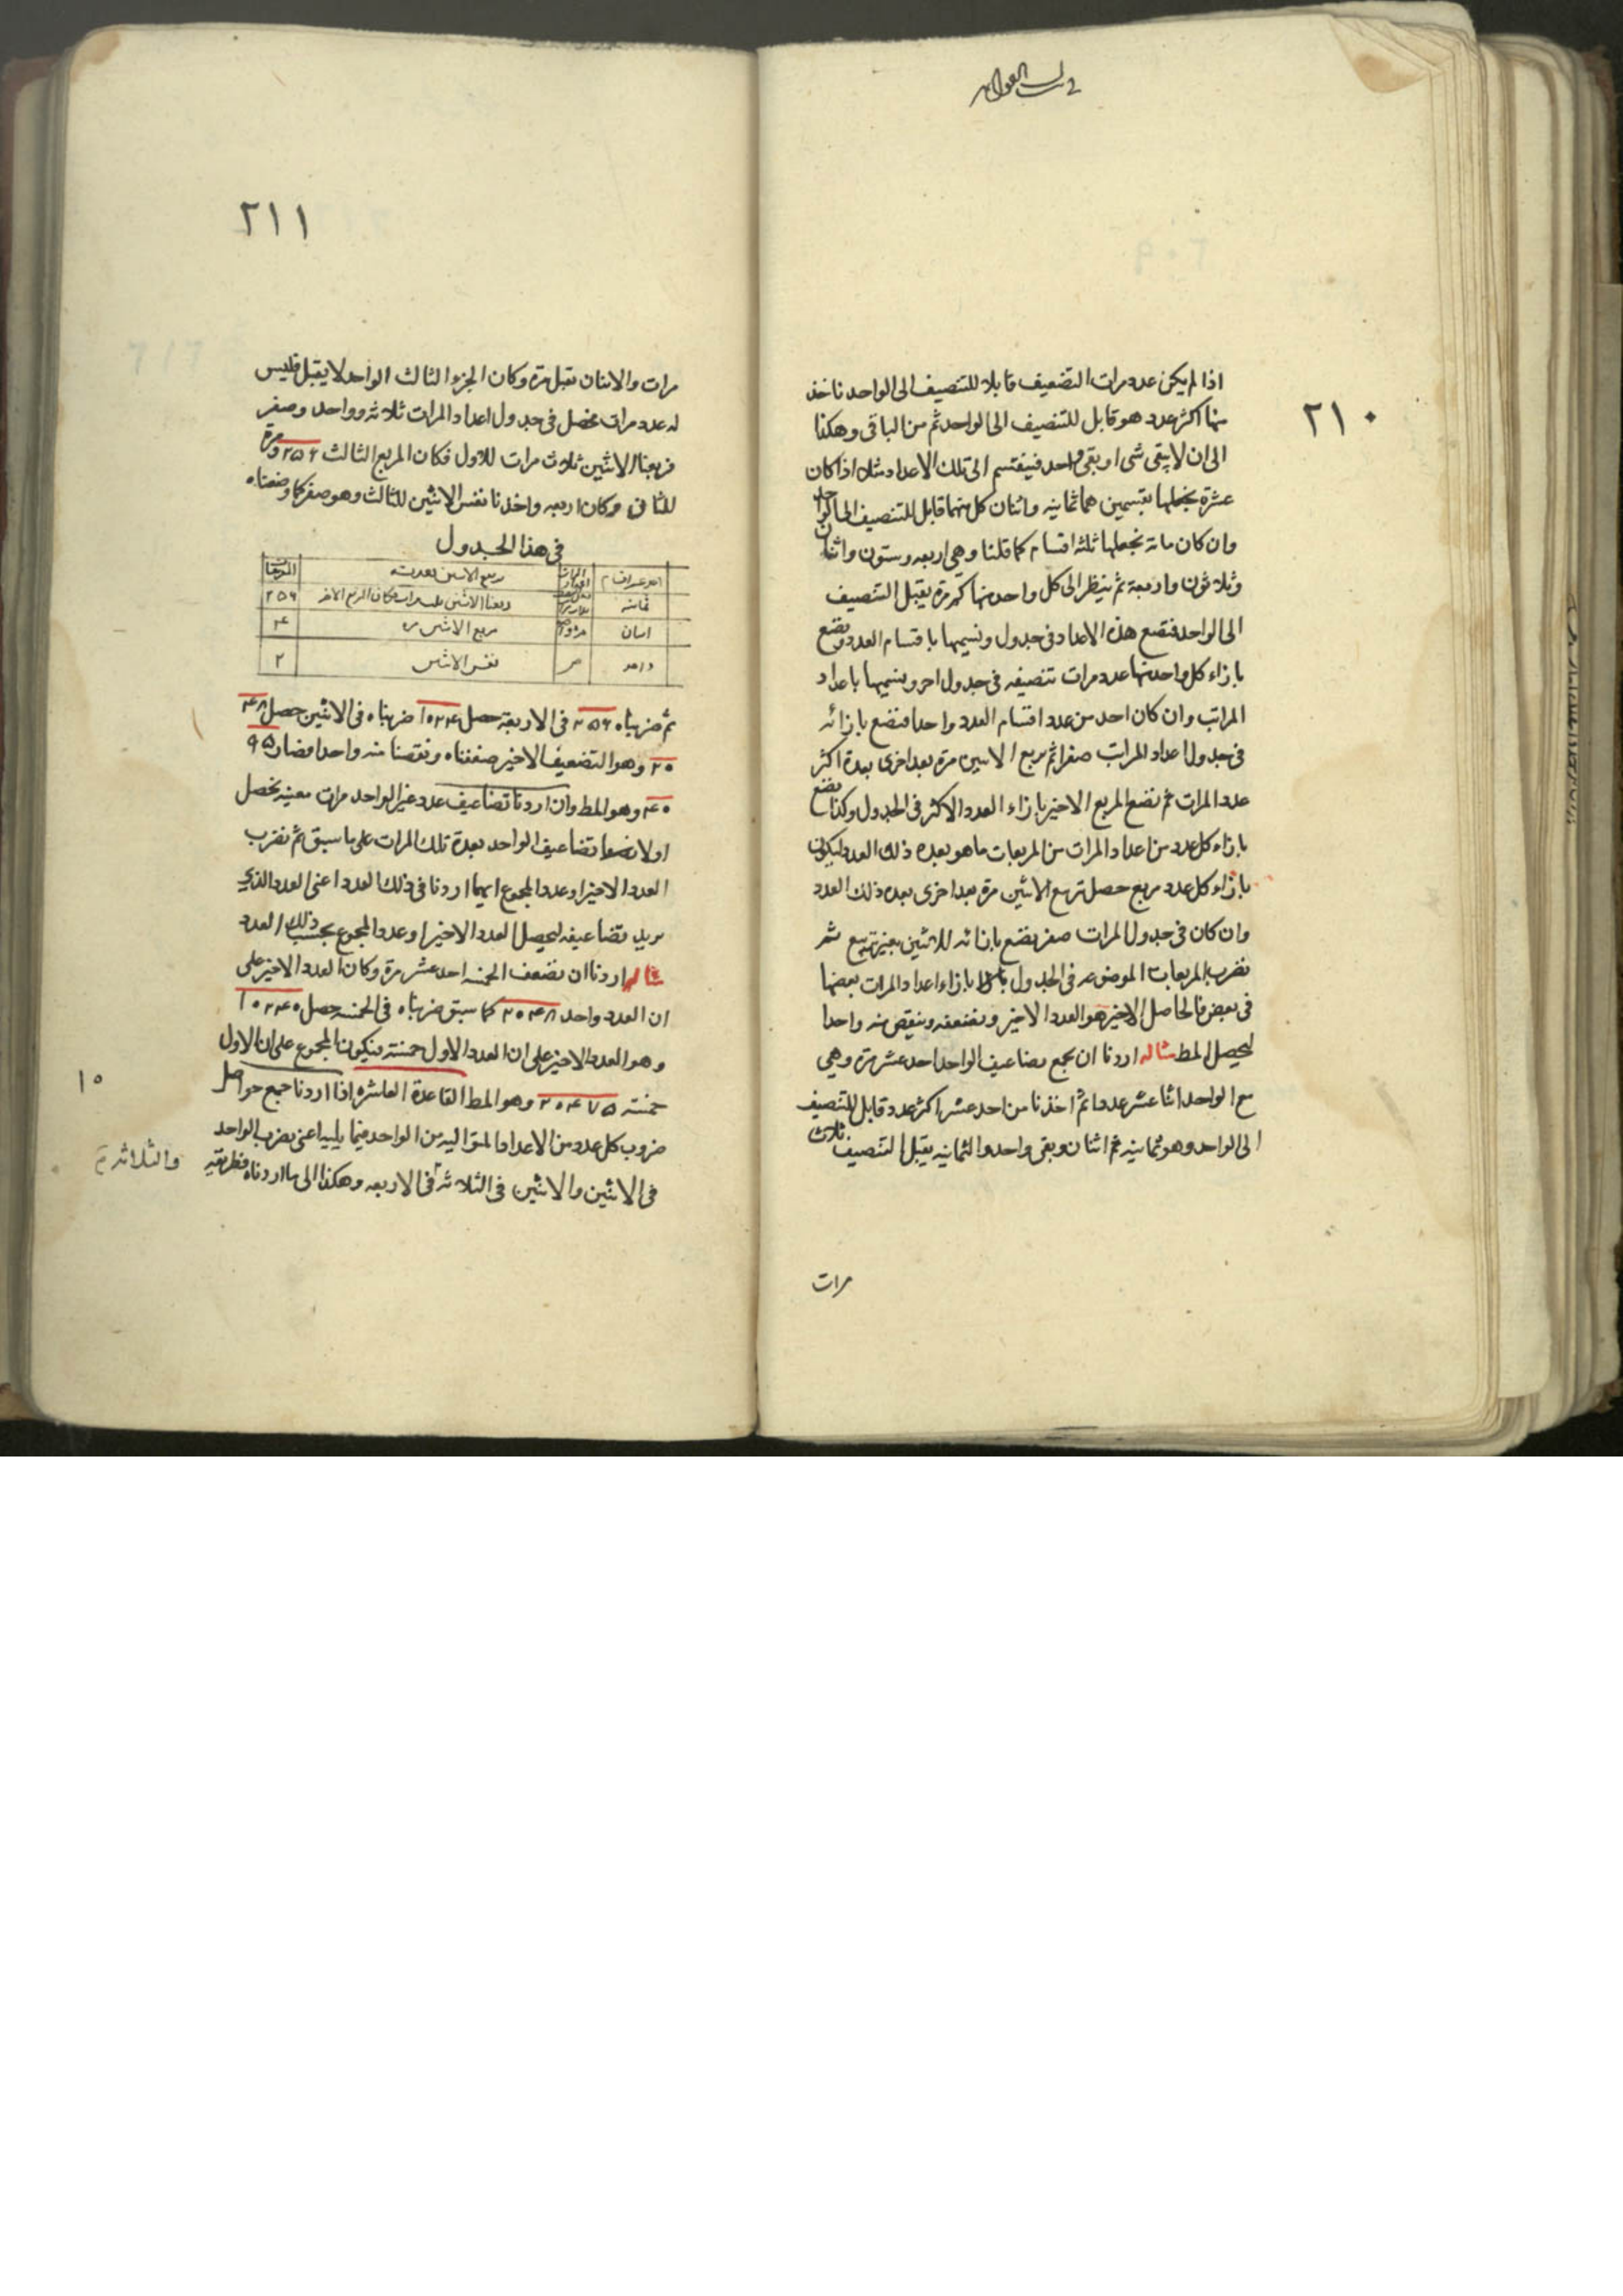 ٢١٠
اذا لم يكن عدد مرات التضعيف قابلا للتنصيف الى الواحد ناخذ
منها اكثر عدد هو قابل للتنصيف الى الواحد ثم من الباقى وهكذا
الى ان لا يبقى شى او بقى واحد فينقسم الى تلك الاعداد مثلا اذا كان
عشرة نجعلها بقسمين هما ثمانيه واثنان كل منهما قابل للتنصيف الى الواحد
وان كان مائة نجعلها ثلثه اقسام كما قلنا وهى اربعه وستون واثنان
وثلاثون واربعة ثم ننظر الى كل واحد منها كم مرة يقبل التنصيف
الى الواحد فنضع هذه الاعداد فى جدول ونسميها باقسام العدد ونضع
بازاء كل واحد منها عدد مرات تنصيفه فى جدول اخر ونسميها باعداد
المراتب وان كان احد من عدد اقسام العدد واحدا فنضع بازائه
فى جدول اعداد المرات صفرا ثم نربع الاثنين مرة بعد اخرى بعدة اكثر
عدد المرات ثم نضع المربع الاخير بازاء العدد الاكثر فى الجدول وكذا نضع
بازاء كل عدد من اعداد المرات من المربعات ما هو بعده ذلك العدد ليكون
بازاء كل عدد مربع حصل تربيع الاثنين مرة بعد اخرى بعده ذلك العدد
وان كان فى جدول المرات صفر نضع بازائه الاثنين بغير تربيع ثم
نضرب المربعات الموضوعه فى الجدول بازاء اعداد المرات بعضها
فى بعض فالحاصل الاخير هو العدد الاخير ونضعفه وننقص منه واحدا
ليحصل المط مثاله اردنا ان نجمع تضاعيف الواحد احد عشر مرة وهى
مع الواحد اثنا عشر عددا ثم اخذنا من احد عشر اكثر عدد قابل للتنصيف
الى الواحد وهو ثمانيه ثم اثنان وبقى واحد والثمانيه يقبل التنصيف ثلاث
مرات
٢١١
مرات والاثنان تقبل مرة وكان الجزء الثالث الواحد لا يقبل فليس
له عدد مرات نحصل فى جدول اعداد المرات ثلاثه وواحد وصفر
فربعنا الاثنين ثلاث مرات للاول فكان المربع الثالث ٢٥٦ ومرة
للثانى وكان اربعه واخذنا نفس الاثنين للثالث وهو صفر كما وضعناه
فى هذا الجدول
المربعات
ثمانيه ربعنا الاثنين ثلث مرات فكان المربع الاخر ٢٥٦
اثنان مربع الاثنين مره ۴
واحد نفس الاثنين ٢
ثم ضربناه ٢٥٦ فى الاربعة حصل ١٠٢۴ ضربناه فى الاثنين حصل ۴٨
٢٠ وهو التضعيف الاخير ضعفناه ونقصنا منه واحدا فصار ٩٥
۴٠ وهو المط وان اردنا تضاعيف عدد غير الواحد مرات معينه نحصل
اولا تضاعيف الواحد بعدة تلك المرات على ما سبق ثم نضرب
العدد الاخير او عدد المجموع ايهما اردنا فى ذلك العدد اعنى العدد الذى
نريد تضاعيفه ليحصل العدد الاخير او عدد المجموع بحسب ذلك العدد
مثاله اردنا ان نضعف الخمسه احد عشر مرة وكان العدد الاخير على
ان العدد واحد ٢٠۴٨ كما سبق ضربناه فى الخمسه حصل ١٠٢۴٠
وهو العدد الاخير على ان العدد الاول خمسته فيكون المجموع على ان الاول
خمسته ٢٠۴٧٥ وهو المط القاعدة العاشره اذا اردنا جمع حواصل
١٠
ضروب كل عدد من الاعداد المتواليه من الواحد فيما يليه اعنى نضرب الواحد
فى الاثنين والاثنين فى الثلاثه فى الاربعه وهكذا الى ما اردناه فطريقه
والثلاثه